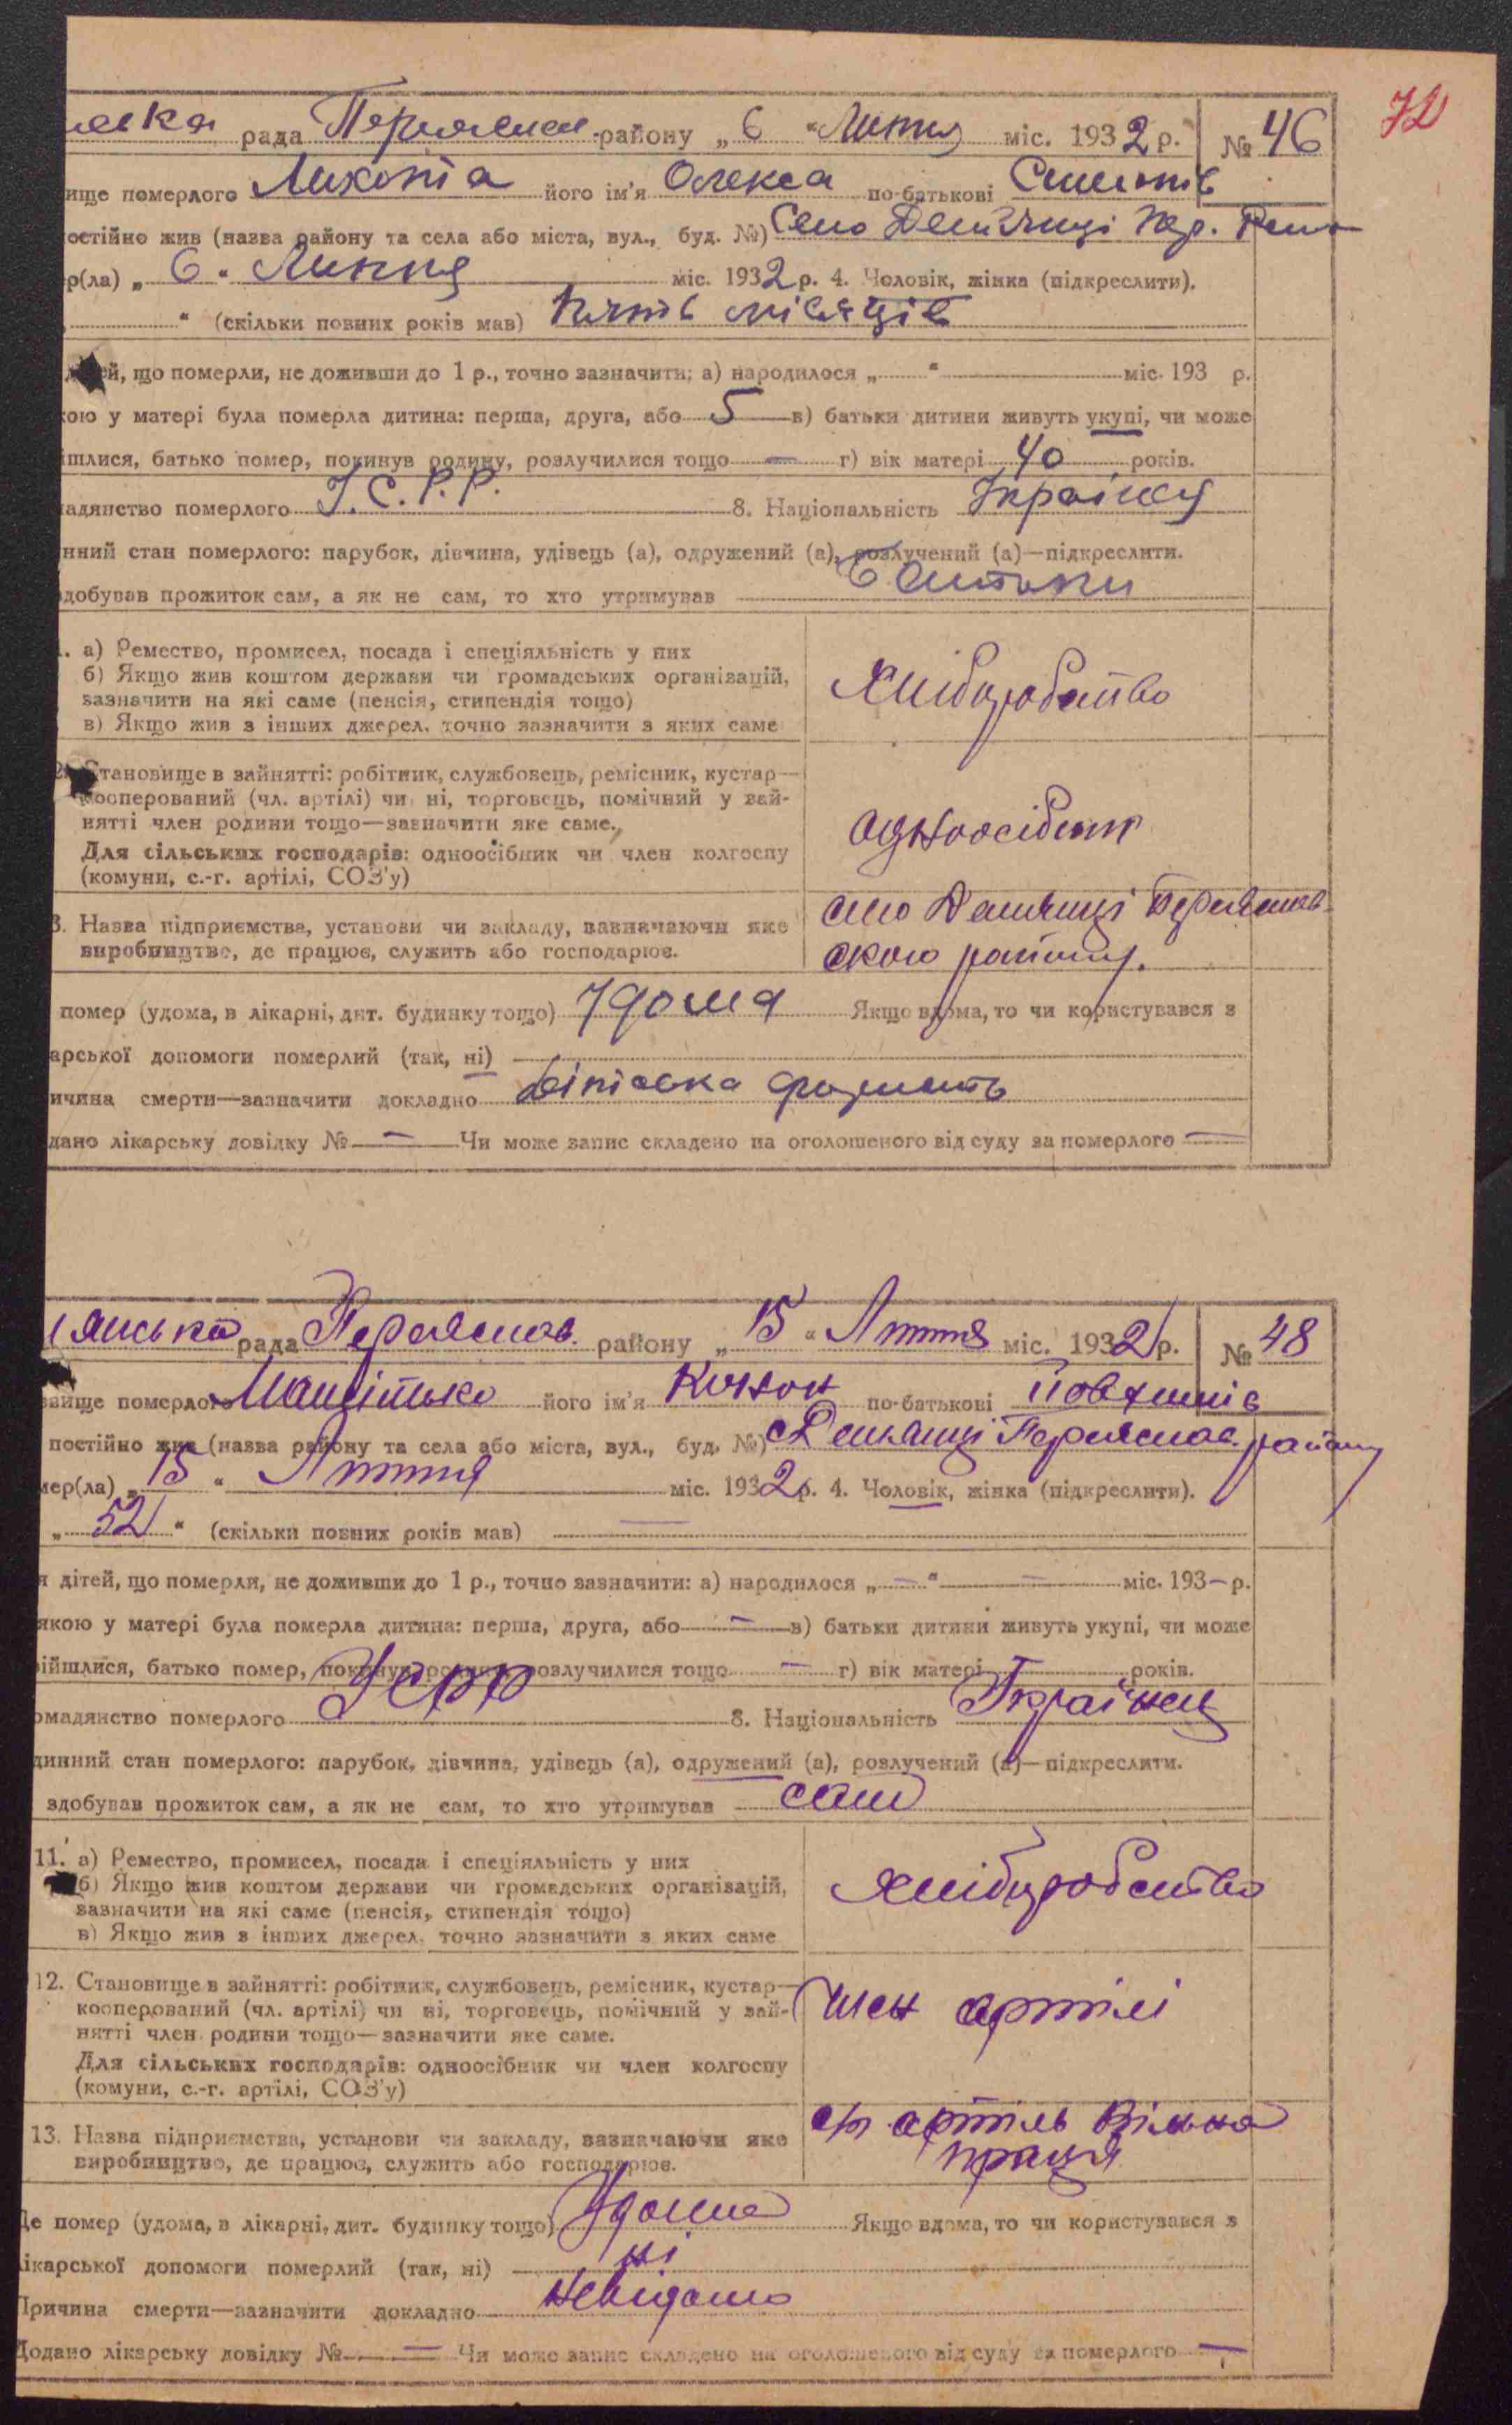 72
рада Переяслав. району „ 6 “ Липня міс. 1932 р. № 46
ище померлого Лихопіа його ім'я Олекса по-батькові Семенів
остійно жив (назва району та села або міста, вул., буд. №) Село Дем'янці Пер. Рай
р(ла) „ 6 “ Липня міс. 1932 р. 4. Чоловік, жінка (підкреслити).
“ (скільки повних років мав) Пять місяців
дітей, що померли, не доживши до 1 р., точно зазначити; а) народилося „ “ міс. 193 р.
кою у матері була померла дитина: перша, друга, або 5 в) батьки дитини живуть укупі, чи може
ійшлися, батько помер, покинув родину, розлучилися тощо — г) вік матері 40 років.
адянство померлого У.С.Р.Р. 8. Національність Українец
нний стан померлого: парубок, дівчина, удівець (а), одружений (а), розлучений (а)—підкреслити.
добував прожиток сам, а як не сам, то хто утримував Батьки
. а) Ремество, промисел, посада і спеціяльність у них
б) Якщо жив коштом держави чи громадських організацій,
зазначити на які саме (пенсія, стипендія тощо)
в) Якщо жив з інших джерел, точно зазначити з яких саме
Хліборобство
2. Становище в зайнятті: робітник, службовець, ремісник, кустар—
кооперований (чл. артілі) чи ні, торговець, помічний у зай-
нятті член родини тощо—зазначити яке саме.
Для сільських господарів: одноосібник чи член колгоспу
(комуни, с.-г. артілі, СОЗ'у)
Одноосібник
3. Назва підприємства, установи чи закладу, зазначаючи яке
виробництво, де працює, служить або господарює.
село Демянці Переяслав-
ского району.
помер (удома, в лікарні, дит. будинку тощо) Удома Якщо вдома, то чи користувався з
арської допомоги померлий (так, ні)
ичина смерти—зазначити докладно
дано лікарську довідку № — Чи може запис складено на оголошеного від суду за померлого —
янська рада Переяслав. району „ 15 “ Липня міс. 1932 р. № 48
вище померлого його ім'я Конон по-батькові Йовхимів
постійно жив (назва району та села або міста, вул., буд. №) с Демянці Переяслав. району
мер(ла) „ 15 “ Липня міс. 1932 р. 4. Чоловік, жінка (підкреслити).
„ 52 “ (скільки повних років мав) —
я дітей, що померли, не доживши до 1 р., точно зазначити: а) народилося „ — “ — міс. 193 — р.
якою у матері була померла дитина: перша, друга, або — в) батьки дитини живуть укупі, чи може
ійшлися, батько помер, покинув родину, розлучилися тощо — г) вік матері років.
омадянство померлого УСРР 8. Національність Українец
динний стан померлого: парубок, дівчина, удівець (а), одружений (а), розлучений (а)—підкреслити.
здобував прожиток сам, а як не сам, то хто утримував сам
11. а) Ремество, промисел, посада і спеціяльність у них
б) Якщо жив коштом держави чи громадських організацій,
зазначити на які саме (пенсія, стипендія тощо)
в) Якщо жив з інших джерел, точно зазначити з яких саме
Хліборобство
12. Становище в зайнятті: робітник, службовець, ремісник, кустар—
кооперований (чл. артілі) чи ні, торговець, помічний у зай-
нятті член родини тощо—зазначити яке саме.
Для сільських господарів: одноосібник чи член колгоспу
(комуни, с.-г. артілі, СОЗ'у)
Член артілі
13. Назва підприємства, установи чи закладу, зазначаючи яке
виробництво, де працює, служить або господарює.
с/г артіль Вільна
праця
Де помер (удома, в лікарні, дит. будинку тощо) Удома Якщо вдома, то чи користувався з
лікарської допомоги померлий (так, ні) ні
Причина смерти—зазначити докладно невідомо
Додано лікарську довідку № — Чи може запис складено на оголошеного від суду за померлого —